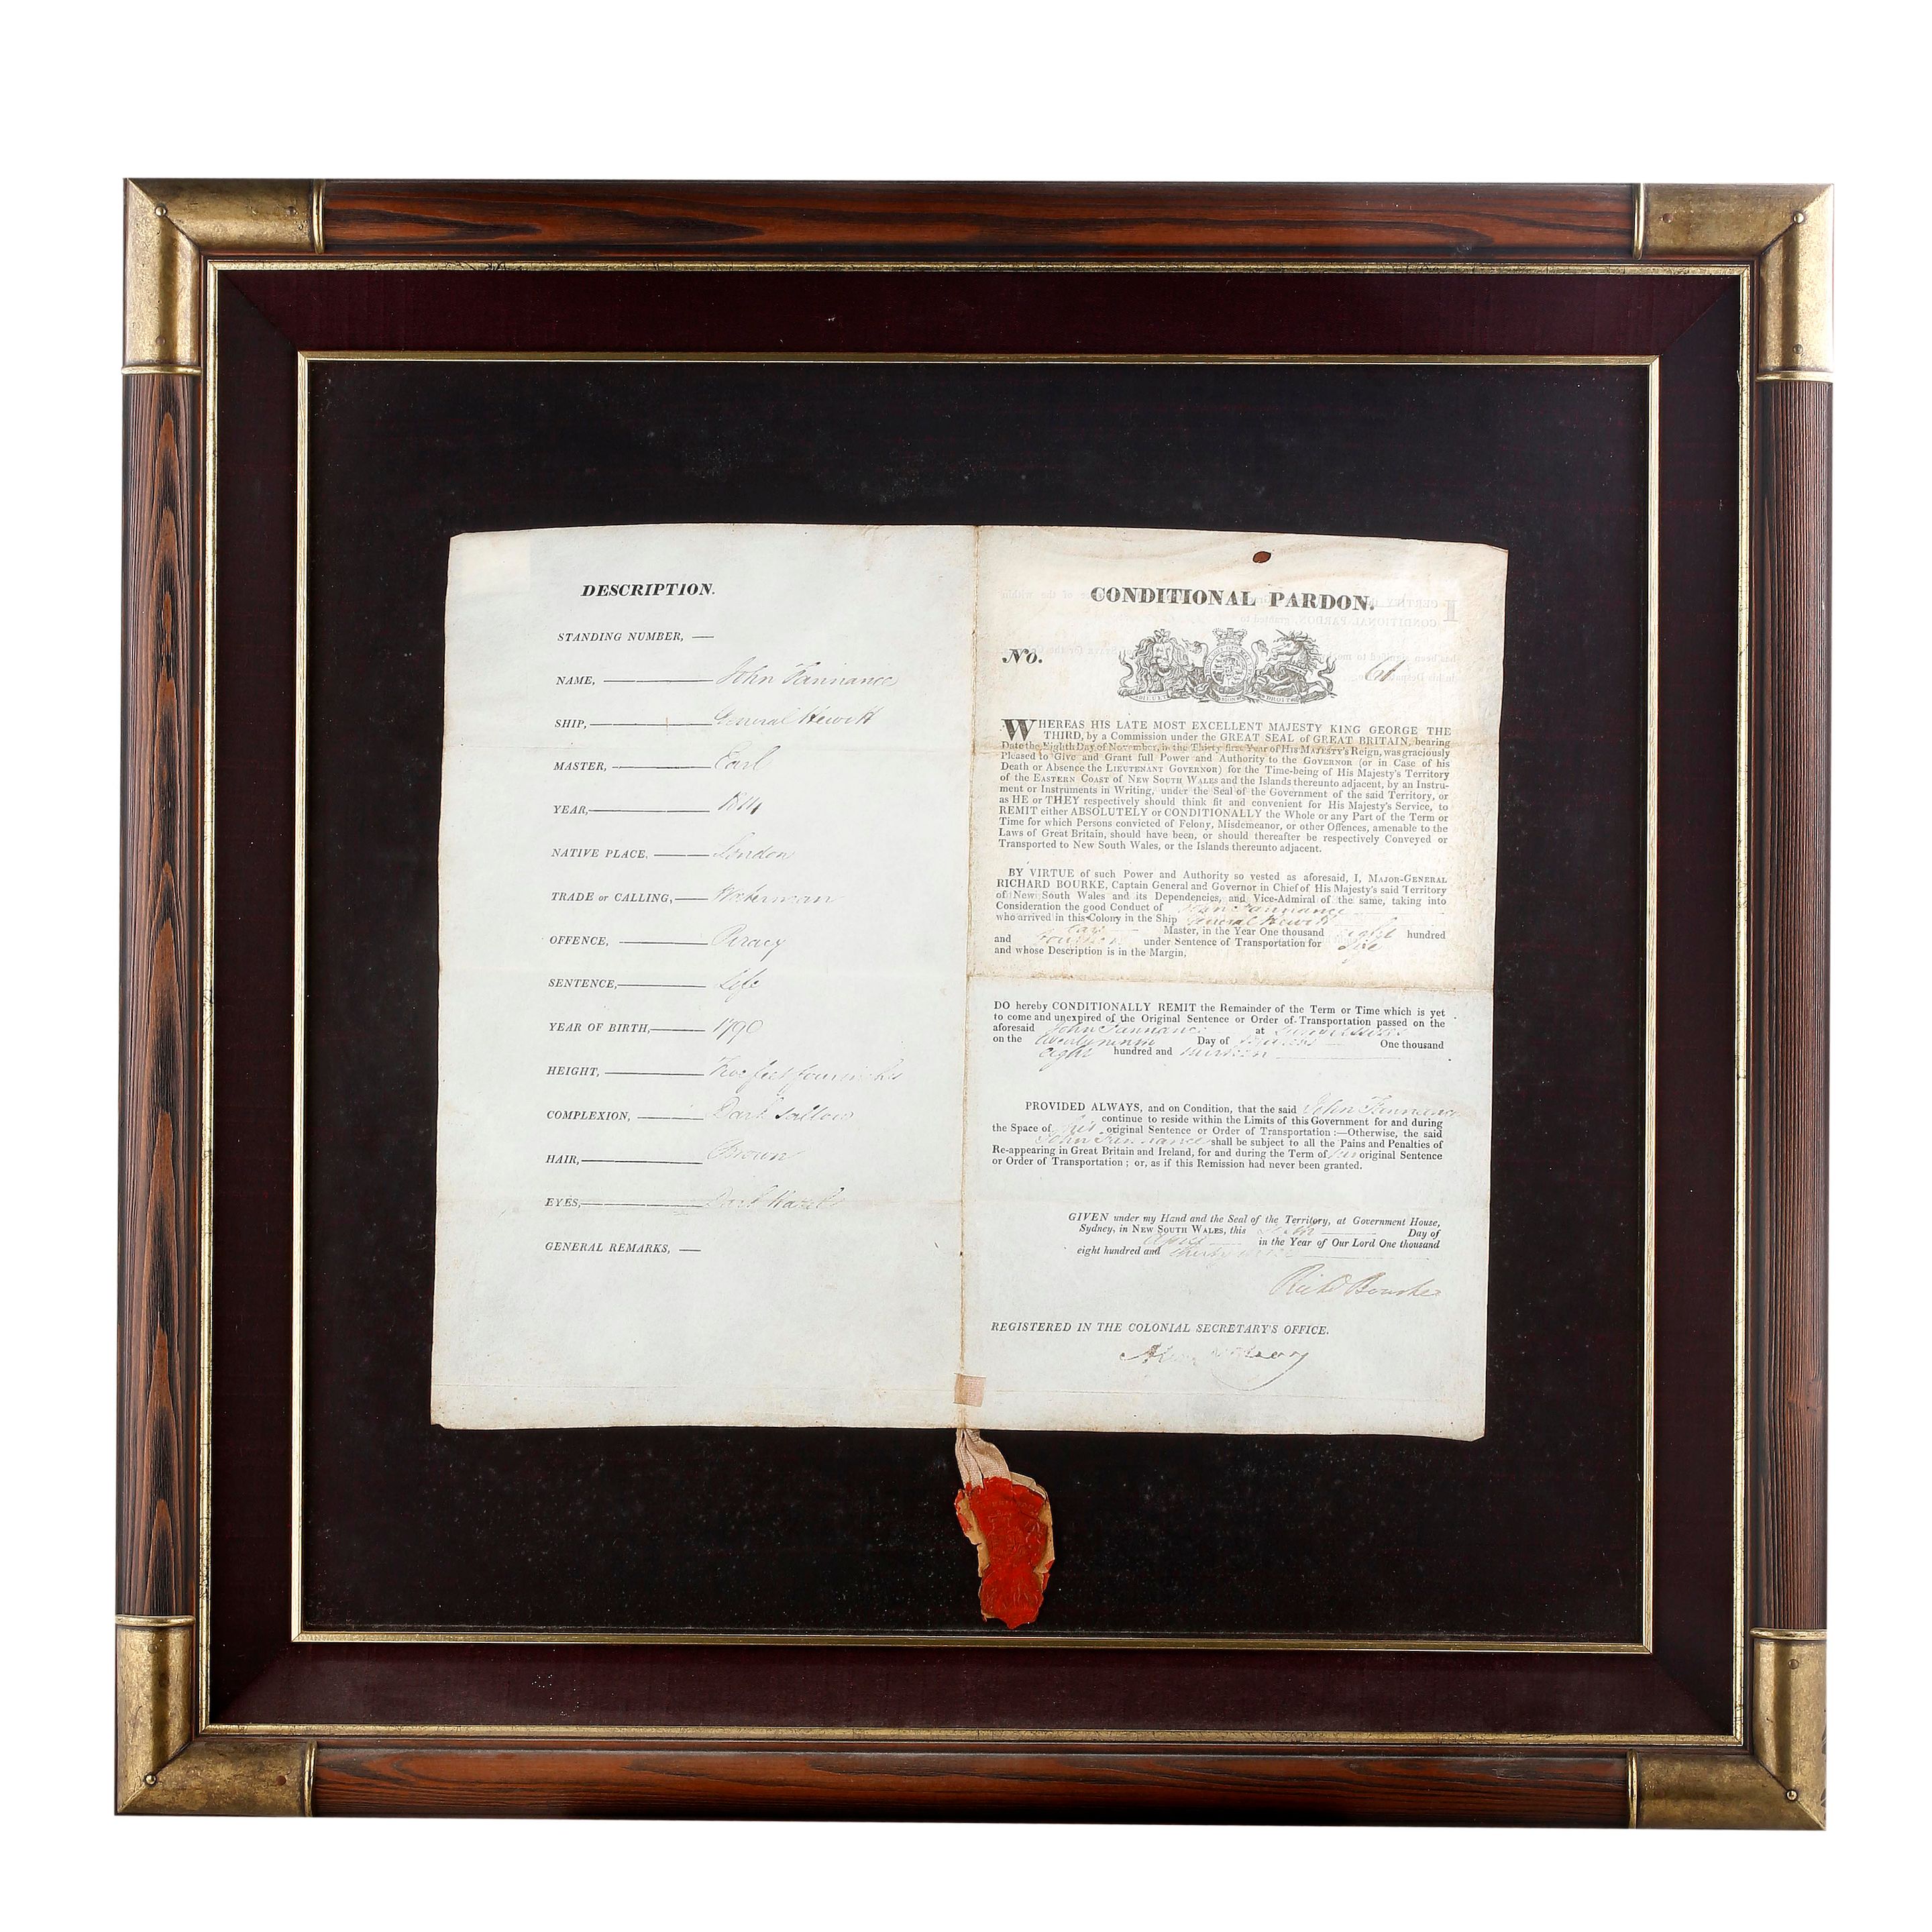 DESCRIPTION.
STANDING NUMBER, —
NAME, — John Fannance
SHIP, — General Hewitt
MASTER, — Earl
YEAR, — 1814
NATIVE PLACE, — London
TRADE or CALLING, — Waterman
OFFENCE, — Piracy
SENTENCE, — Life
YEAR OF BIRTH, — 1790
HEIGHT, — Five feet four inches
COMPLEXION, — Dark Sallow
HAIR, — Brown
EYES, — Dark Hazel
GENERAL REMARKS, —
CONDITIONAL PARDON.
No. 61
WHEREAS HIS LATE MOST EXCELLENT MAJESTY KING GEORGE THE
THIRD, by a Commission under the GREAT SEAL of GREAT BRITAIN, bearing
Date the Eighth Day of November, in the Thirty first Year of His Majesty's Reign, was graciously
Pleased to Give and Grant full Power and Authority to the Governor (or in Case of his
Death or Absence the Lieutenant Governor) for the Time-being of His Majesty's Territory
of the Eastern Coast of New South Wales and the Islands thereunto adjacent, by an Instru-
ment or Instruments in Writing, under the Seal of the Government of the said Territory, or
as HE or THEY respectively should think fit and convenient for His Majesty's Service, to
REMIT either ABSOLUTELY or CONDITIONALLY the Whole or any Part of the Term or
Time for which Persons convicted of Felony, Misdemeanor, or other Offences, amenable to the
Laws of Great Britain, should have been, or should thereafter be respectively Conveyed or
Transported to New South Wales, or the Islands thereunto adjacent.
BY VIRTUE of such Power and Authority so vested as aforesaid, I, Major-General
RICHARD BOURKE, Captain General and Governor in Chief of His Majesty's said Territory
of New South Wales and its Dependencies, and Vice-Admiral of the same, taking into
Consideration the good Conduct of John Fannance
who arrived in this Colony in the Ship General Hewitt
Earl Master, in the Year One thousand eight hundred
and fourteen under Sentence of Transportation for Life
and whose Description is in the Margin,
DO hereby CONDITIONALLY REMIT the Remainder of the Term or Time which is yet
to come and unexpired of the Original Sentence or Order of Transportation passed on the
aforesaid John Fannance at
on the Day of One thousand
eight hundred and thirteen
PROVIDED ALWAYS, and on Condition, that the said John Fannance
continue to reside within the Limits of this Government for and during
the Space of his original Sentence or Order of Transportation :—Otherwise, the said
John Fannance shall be subject to all the Pains and Penalties of
Re-appearing in Great Britain and Ireland, for and during the Term of his original Sentence
or Order of Transportation ; or, as if this Remission had never been granted.
GIVEN under my Hand and the Seal of the Territory, at Government House,
Sydney, in New South Wales, this Day of
April in the Year of Our Lord One thousand
eight hundred and thirty
Richd Bourke
REGISTERED IN THE COLONIAL SECRETARY'S OFFICE.